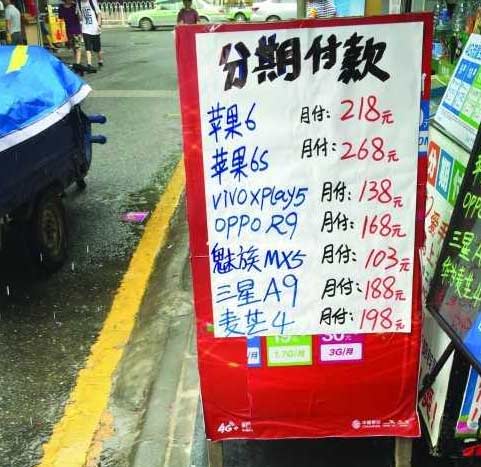 分期付款
苹果6 月付:218元
苹果6s 月付:268元
vivoxplay5 月付:138元
OPPO R9 月付:168元
魅族MX5 月付:103元
三星A9 月付:188元
麦芒4 月付:198元
1.7G/月
3G/月
4G+
中国移动
OPPO
三星
分期